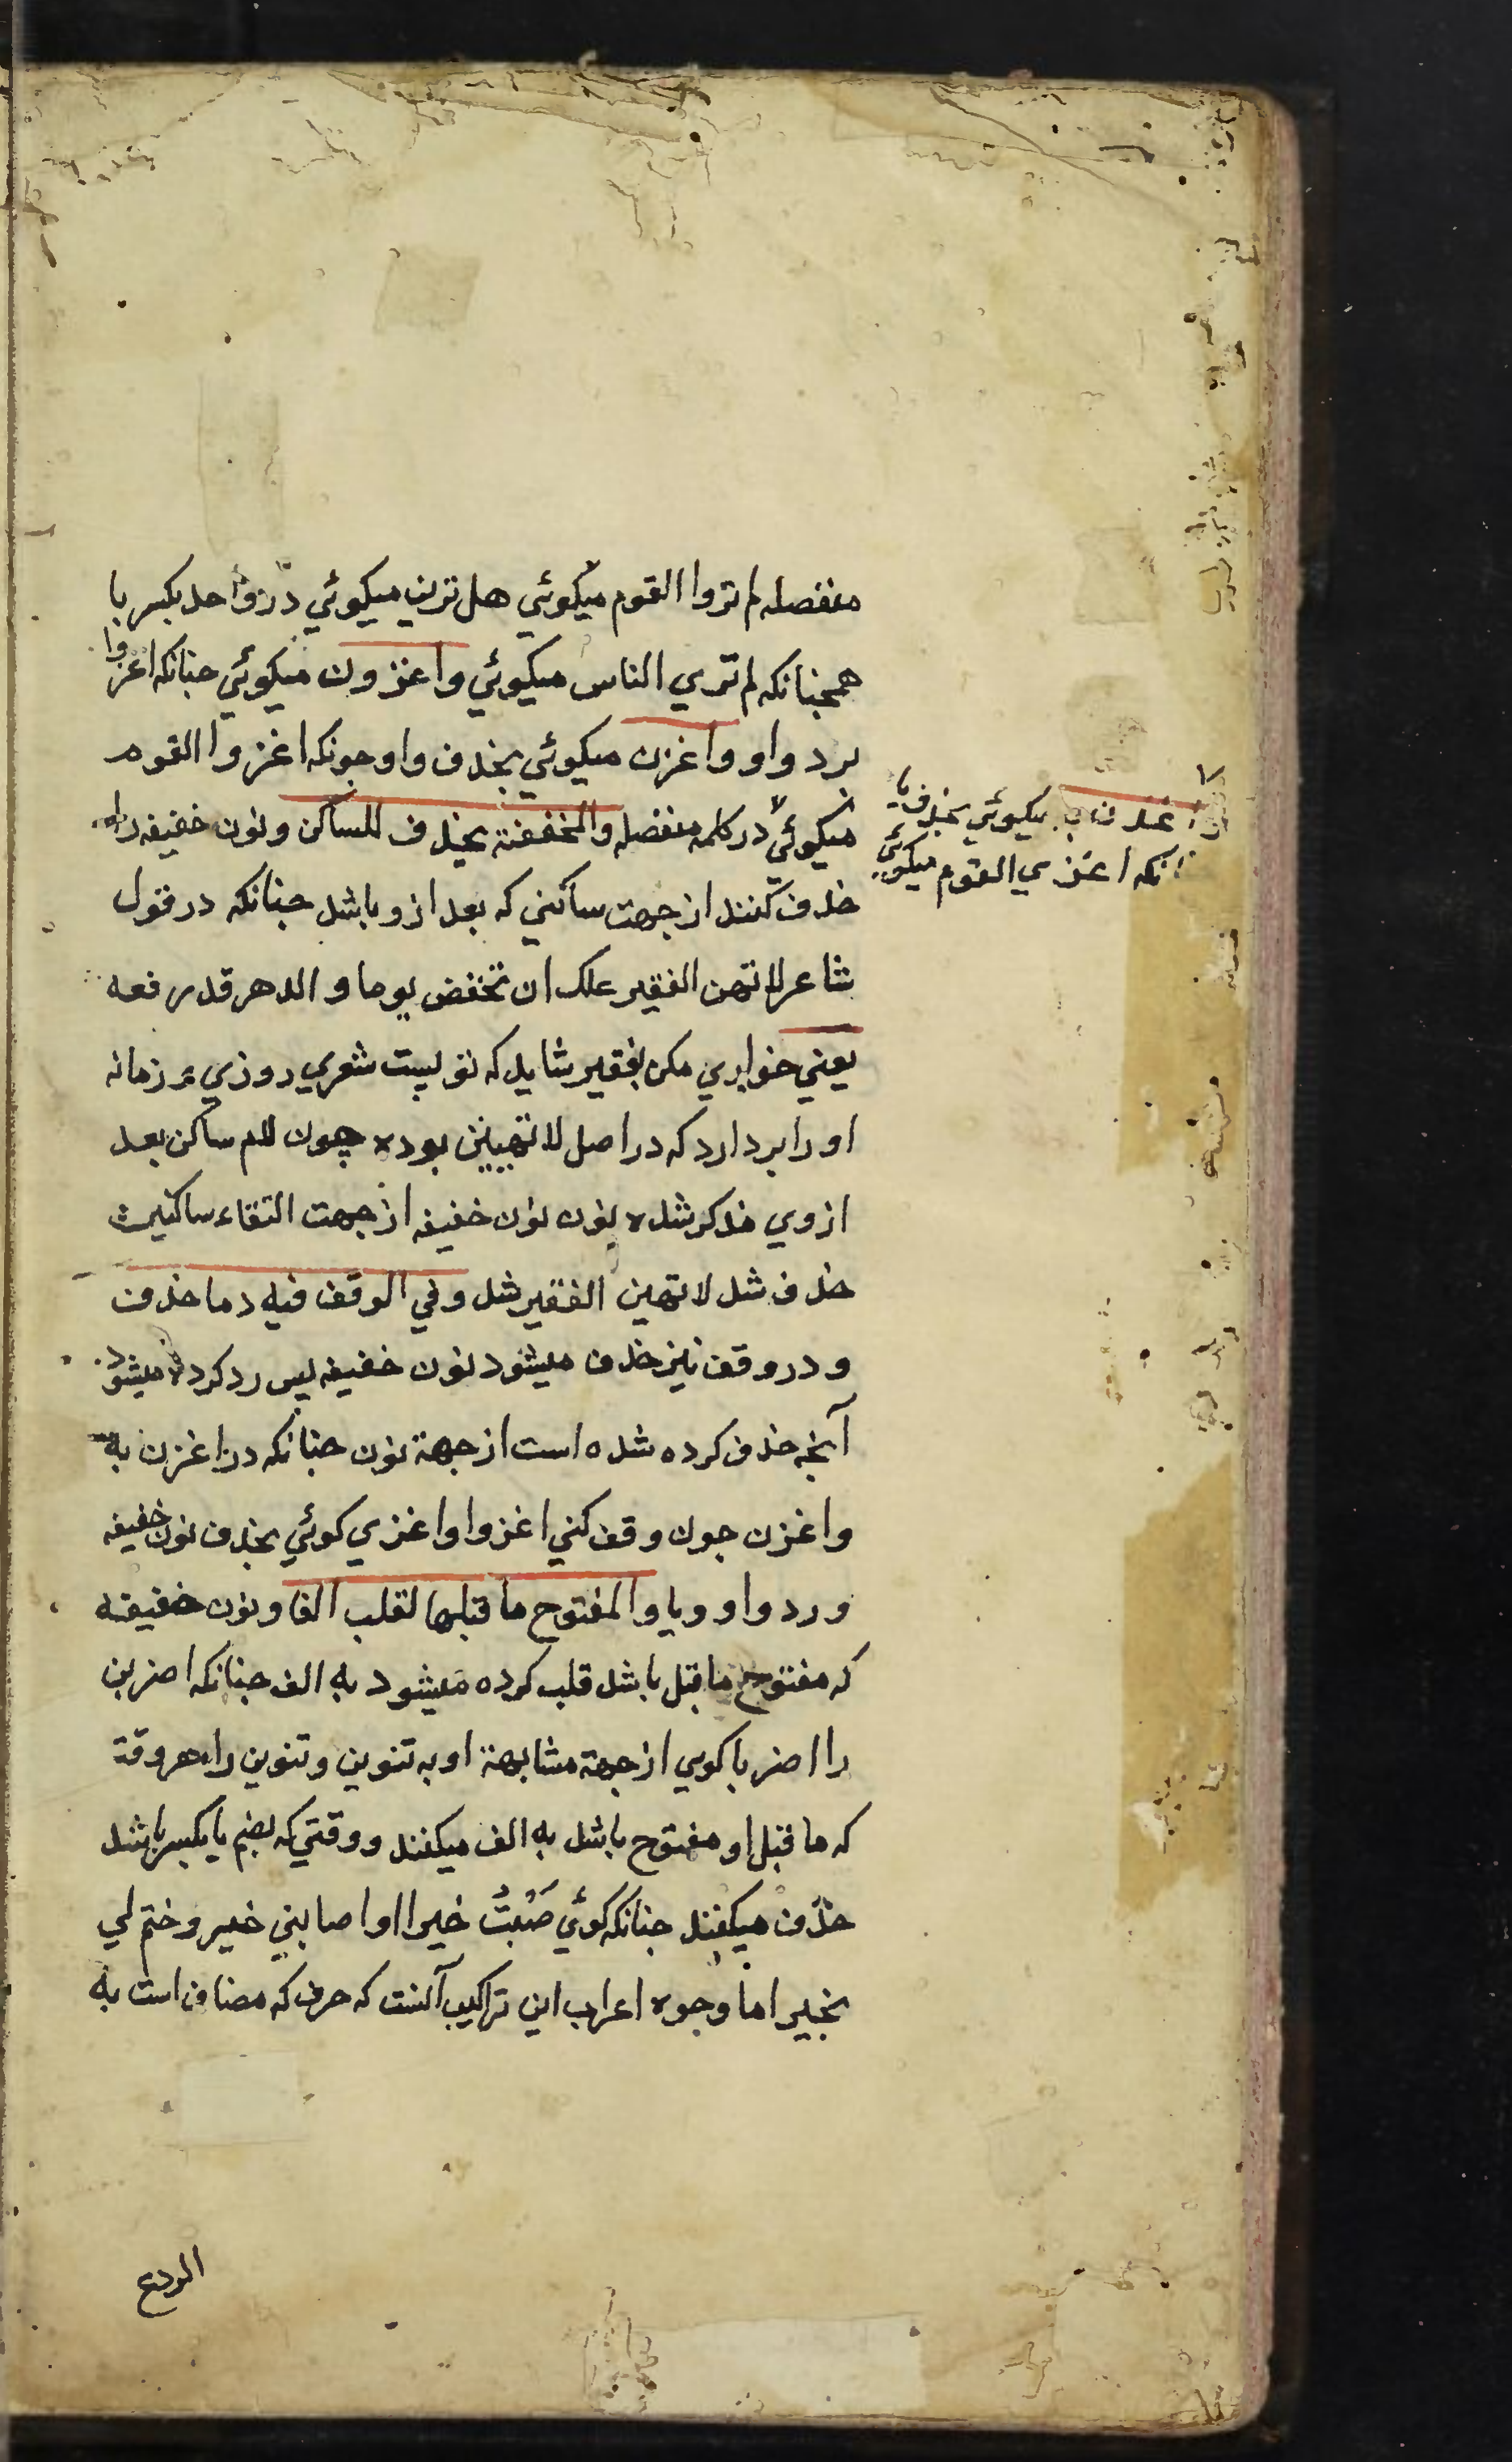 منفصله لم تروا القوم میکوئي هل ترین میکوئي در واحد بکسر یا
همجنانکه لم تري الناس میکوئي واغزون میکوئي جنانکه اغزوا
برد واو واغزن میکوئي بحذف واو جونکه اغزوا القوم
میکوئي در کلمه منفصله والمخففة یحذف للساکن ونون خفیفه را
حذف کنند از جهت ساکني که بعد ازو باشد جنانکه در قول
شاعر لا تهن الفقیر علک ان تخفض یوما و الدهر قد رفعه
یعني خواري مکن بفقیر شاید که تو پست شوي روزي و زمانه
او را بردارد که در اصل لا تهینن بوده چون لام ساکن بعد
ازوي مذکر شده نون خفیفه از جهت التقاء ساکنین
حذف شد لا تهین الفقیر شد وفي الوقف فیرد ما حذف
و در وقف نیز حذف میشود نون خفیفه پس رد کرده میشود
آنچه حذف کرده شده است از جهة نون جنانکه در اغزن به
واغزن جون وقف کني اغزوا واغزي کوئي بحذف نون خفیفه
و رد واو ویا والمفتوح ما قبلها تقلب الفا ونون خفیفه
که مفتوح ما قبل باشد قلب کرده میشود به الف جنانکه اضربن
را اضربا کویي از جهة مشابهة او به تنوین وتنوین را هر وقت
که ما قبل او مفتوح باشد به الف میکنند و وقتي که بضم یا بکسر باشد
حذف میکنند جنانکه کوئي خیرا او اصابني خیر وختم لي
بخیر اما وجوه اعراب این تراکیب آنست که حرف که مضاف است به
میکوئي بحذف یا
انکه اغزي القوم میکوئي